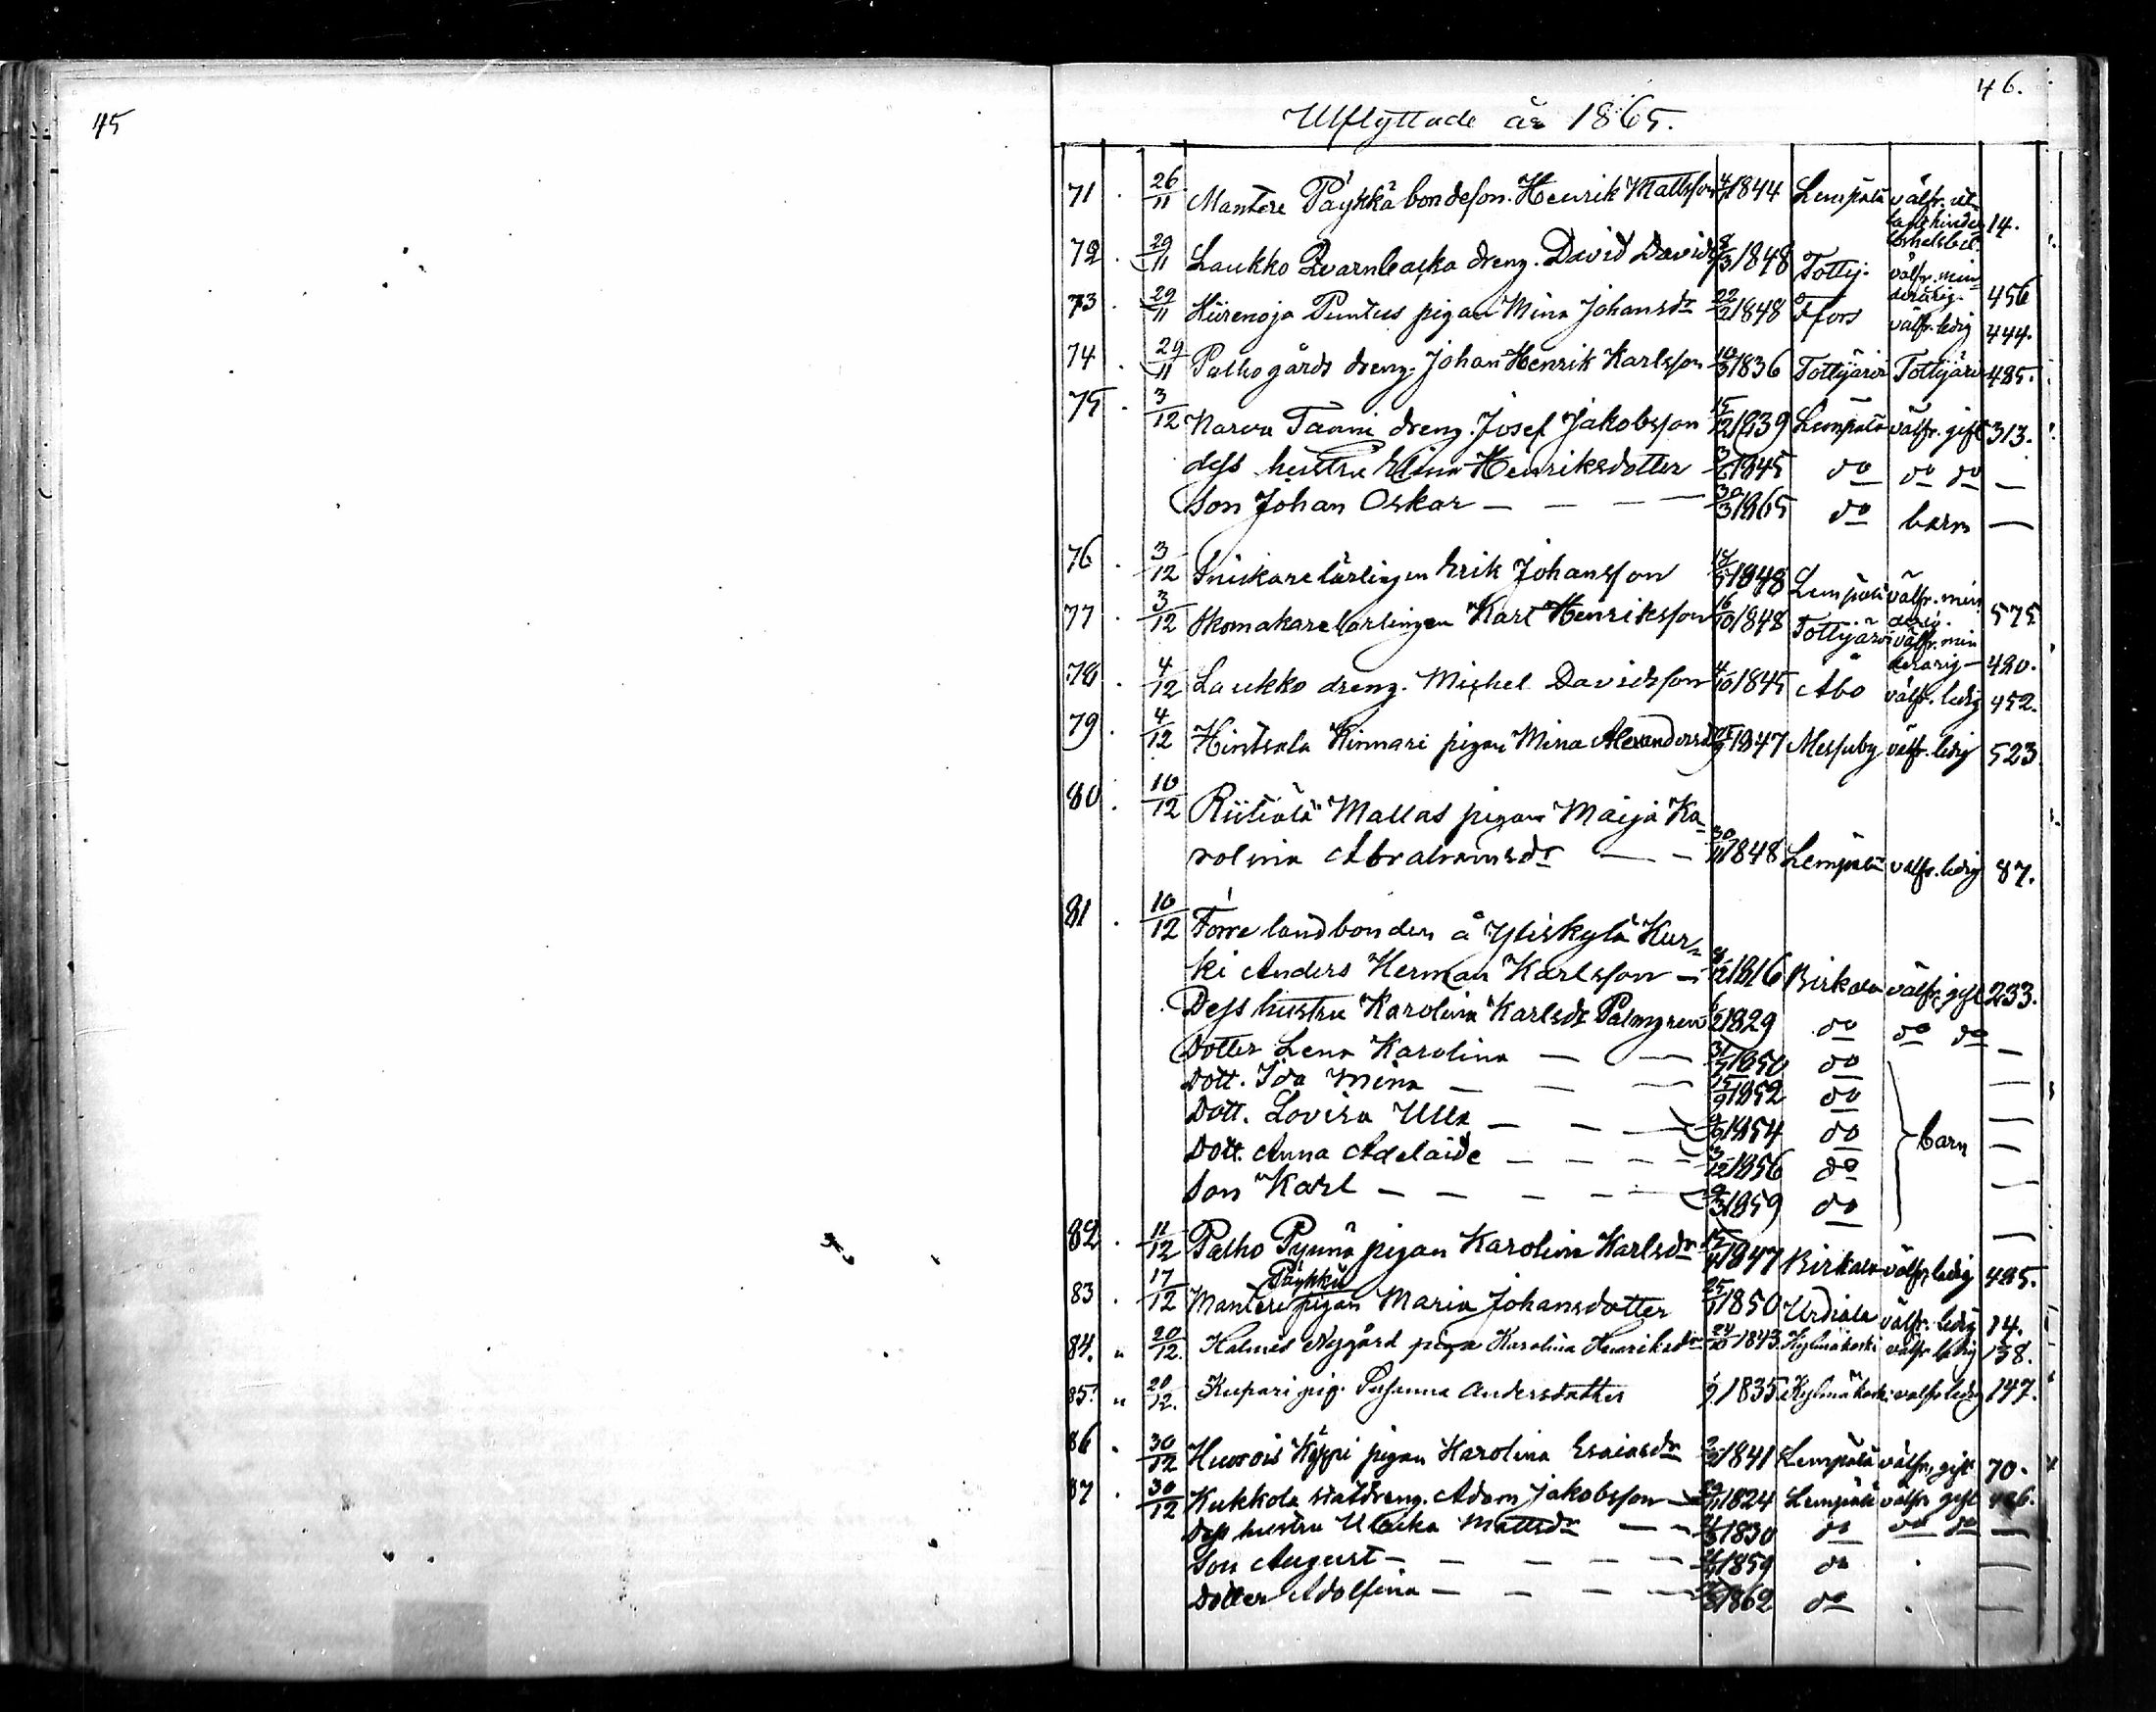 45
46.
Utflyttade år 1865.
71 . 26/11 Mantere Päykkä bondeson. Henrik Mattsson 1844 Lempälä välfr. 14.
72 . 29/11 Laukko Qvarnbacka dreng. David Davidss 8/3 1848 Tottij. välfr. min-
derårig. 456
73 . 29/11 Hiirenoja Puntus pigan Mina Johansdr 22/2 1848 Tfors välfr. ledig 444.
74 . 29/11 Palhogårds dreng. Johan Henrik Karlsson 10/3 1836 Tottijärvi Tottijärvi 485.
75 . 3/12 Narva Tanni dreng. Josef Jakobsson 15/12 1839 Lempälä välfr. gift 313.
dess hustru Elina Henriksdotter 1845 do do do —
Son Johan Oskar — — — 30/3 1865 do barn —
76 . 3/12 Snickarelärlingen Erik Johansson 1848 Lempälä välfr. min
derårig. 575
77 . 3/12 Skomakarelärlingen Karl Henriksson 16/10 1848 Tottijärvi välfr. min
derårig — 420.
78 . 4/12 Laukko dreng. Michel Davidsson 4/10 1845 Åbo välfr. ledig 452.
79 . 4/12 Hintsala Kinnari pigan Mina Alexandersd 1847 Messuby välfr. ledig 523
80 . 10/12 Riitiälä Mallas pigan Maija Ka-
rolina Abrahamsdr — — 30/11 1848 Lempälä välfr. ledig 87.
81 . 10/12 Förre landbonden å Yliskylä Kur-
ki Anders Herman Karlsson — 1816 Birkala välfr, gift 233.
Dess hustru Karolina Karlsdr Palmgren 1829 do do do —
Dotter Lena Karolina — — 31/5 1850 do —
Dott. Ida Mina — — 15/9 1852 do —
Dott. Lovisa Ulla — — — 1854 do barn —
Dott. Anna Adelaide — — — — 3/12 1856 do —
Son Karl — — — — — 1859 do —
82 . 11/12 Palho Pynnä pigan Karolina Karlsdr 1847 Birkala välfr, ledig 485.
Päykkä
83 . 17/12 Mantere pigan Maria Johansdotter 1850 Urdiala välfr. ledig 14.
84. " 20/12. Halmes Nygård piga Karolina Henriksdr 1843. Kylmäkoski välfr ledig 138.
85. " 20/12. Kupari pig. Susanna Andersdotter 1835 Kylmäkoski välfr ledig 147.
86 . 30/12 Huvois Käppi pigan Karolina Esaiasdr 1841 Lempälä välfr, gift 70.
87 . 30/12 Kukkola statdreng. Adam Jakobsson — 1824 Lempälä välfr gift 426.
Dess hustru Ulrika Mattsdr — — 1830 do do do —
Son August — — — — — 1859 do . —
Dotter Adolfina — — — — 1862 do . —